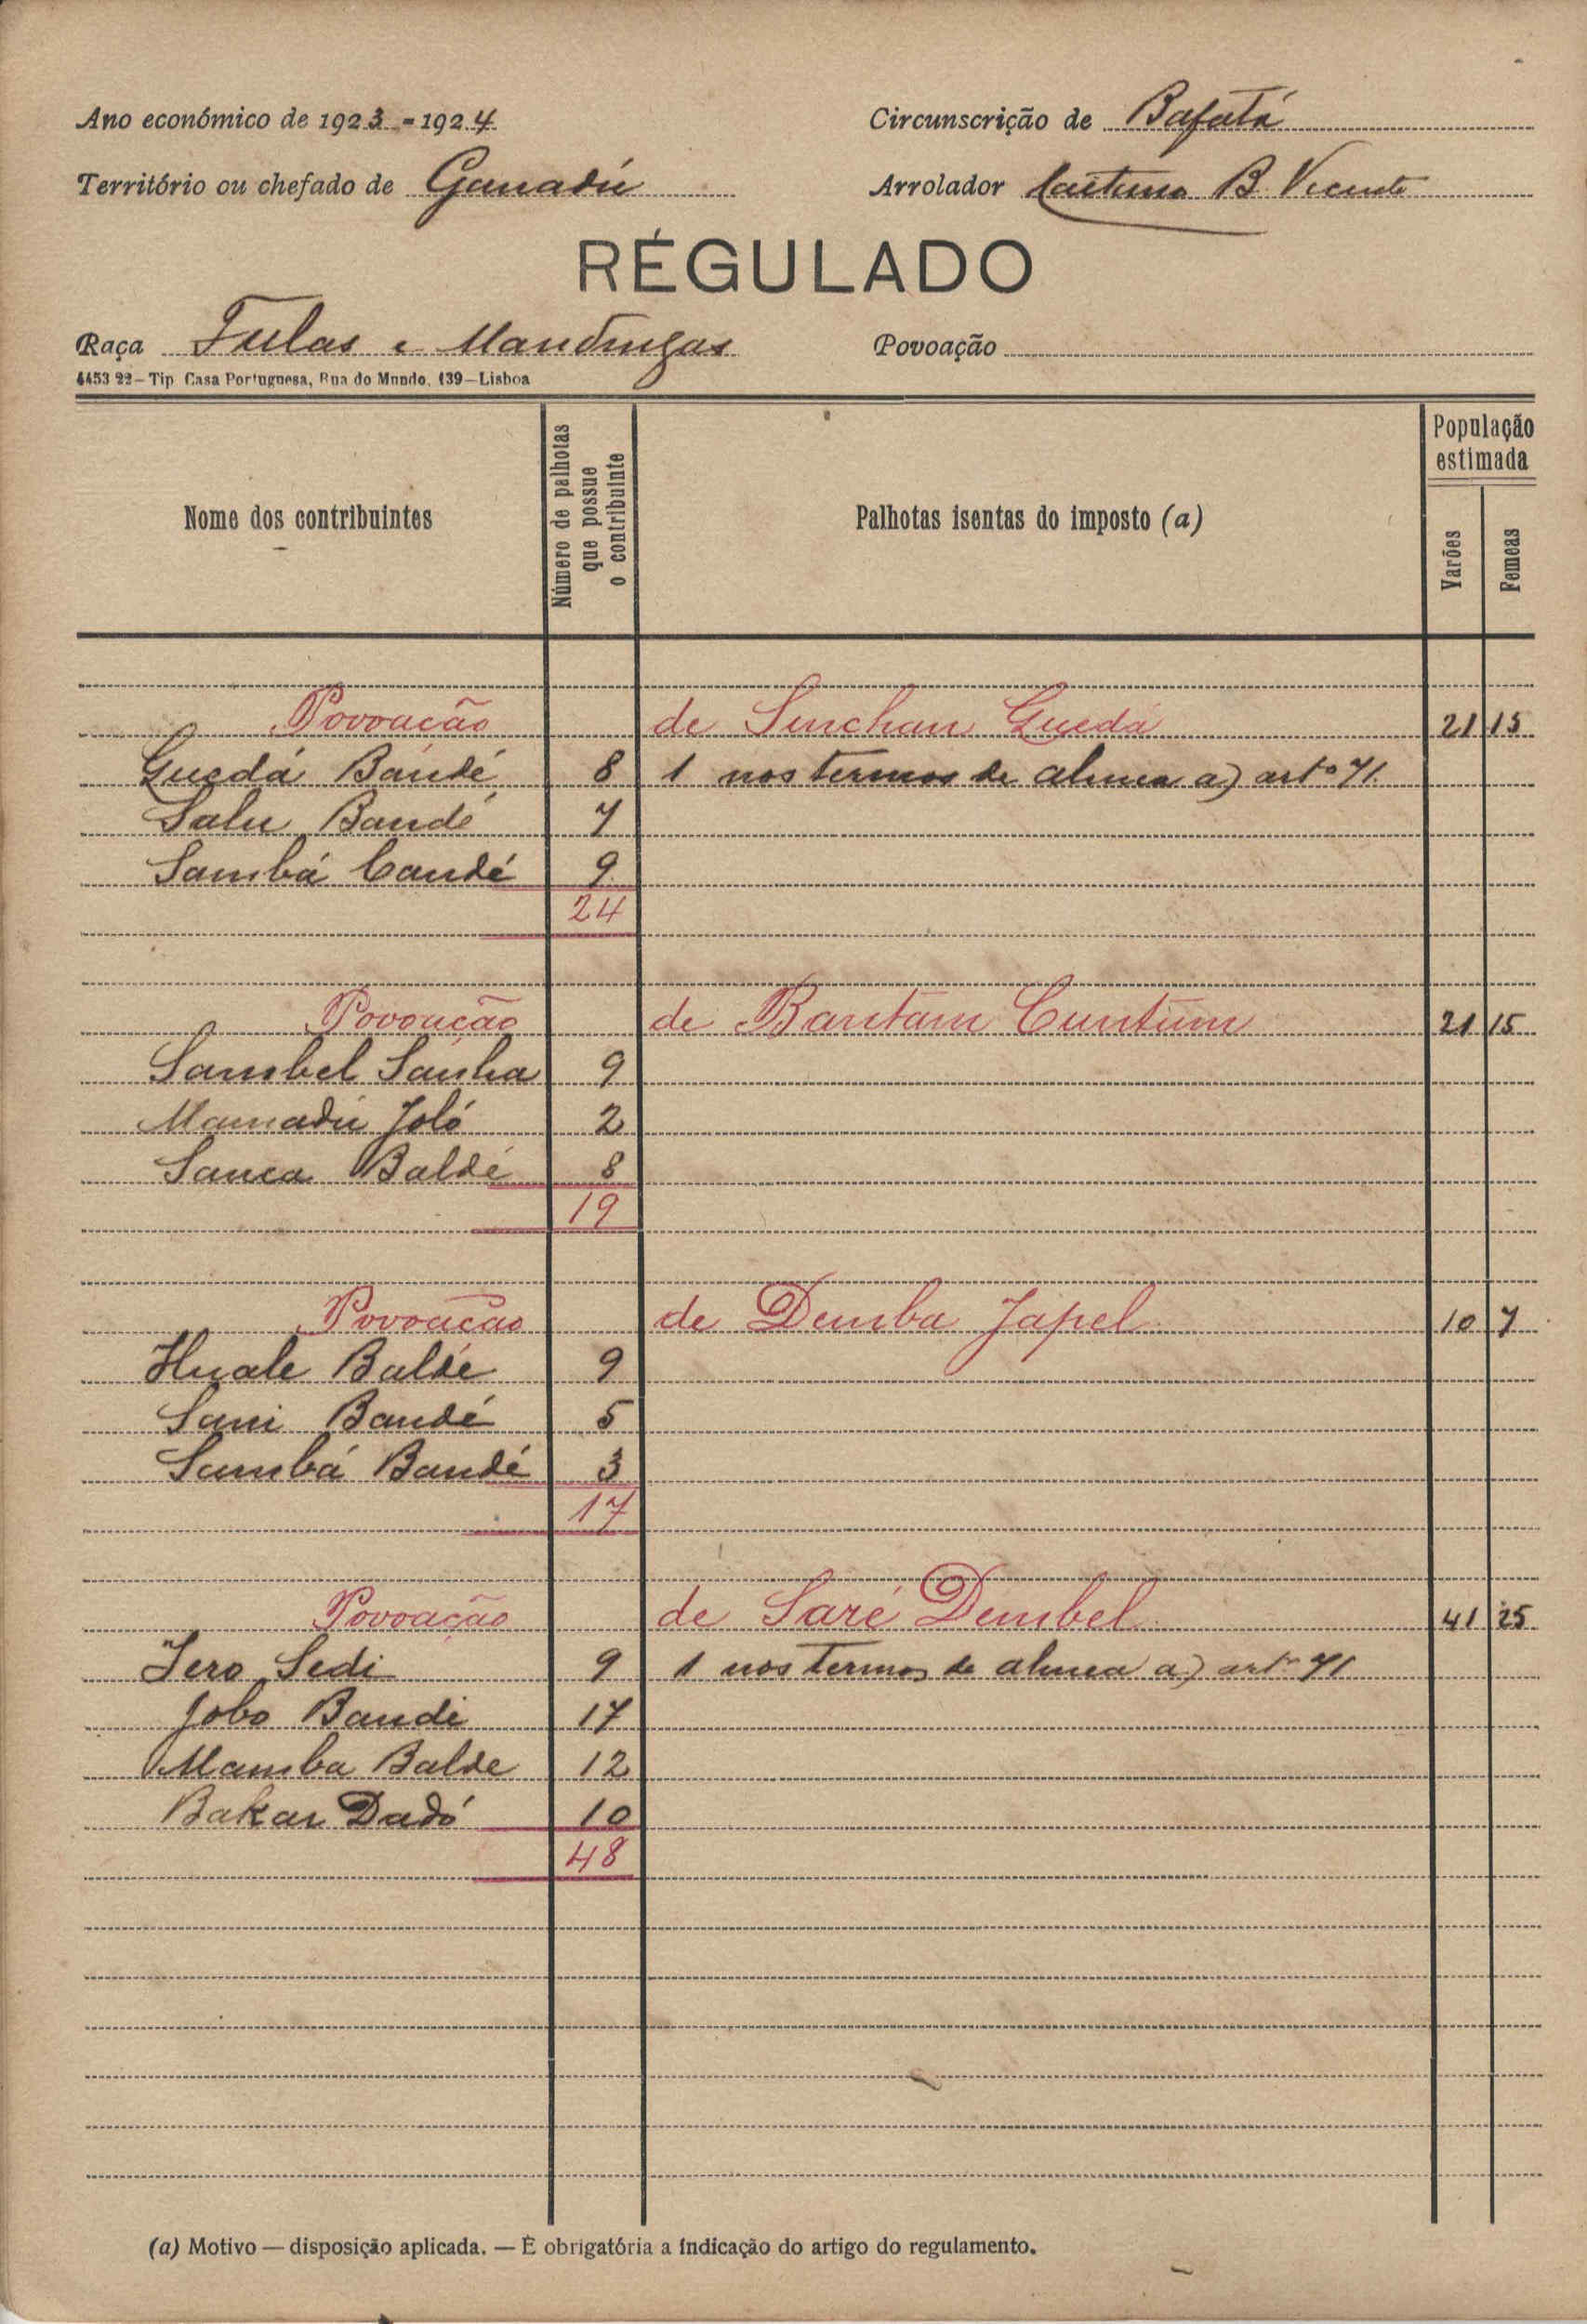 Ano económico de 1923-1924 Circunscrição de Bafatá
Território ou chefado de Ganadú Arrolador Caetano B. Vicente
RÉGULADO
Raça Fulas e Mandingas Povoação
4453 22—Tip. Casa Portuguesa, Rua do Mundo, 139—Lisboa
Nome dos contribuintes
Número de palhotas que possue o contribuinte
Palhotas isentas do imposto (a)
População estimada
Varões
Femeas
Povoacão de Sinchan Guedá 21 15
Guedá Bandé 8 1 nos termos de alinea a) artº 71.
Salu Bandé 7
Sambá Candé 9
24
Povoução de Bantam Cuntum 21 15
Sambel Sanha 9
Mamadú Joló 2
Sanca Baldé 8
19
Povoação de Demba Japel 10 7
Huale Baldé 9
Sani Bandé 5
Sambá Bandé 3
17
Povoação de Saré Dembel 41 25
Sedi 9 1 nos termos de alinea a) artº 71
Jobo Bandé 17
Mamba Balde 12
Bakar Dadó 10
48
(a) Motivo — disposição aplicada. — É obrigatória a indicação do artigo do regulamento.